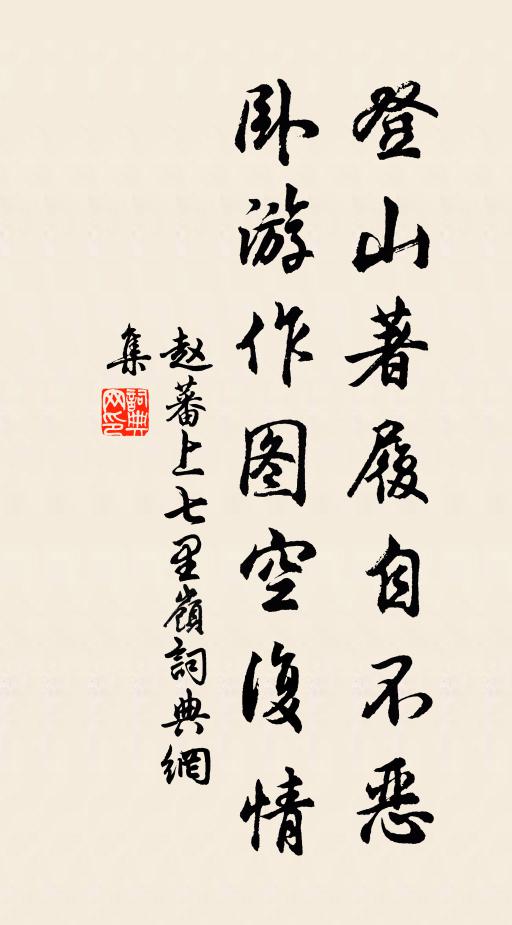 登山著履自不恶
卧游作图空復情
赵蕃上七里嶺詞典網
集
詞典
网印